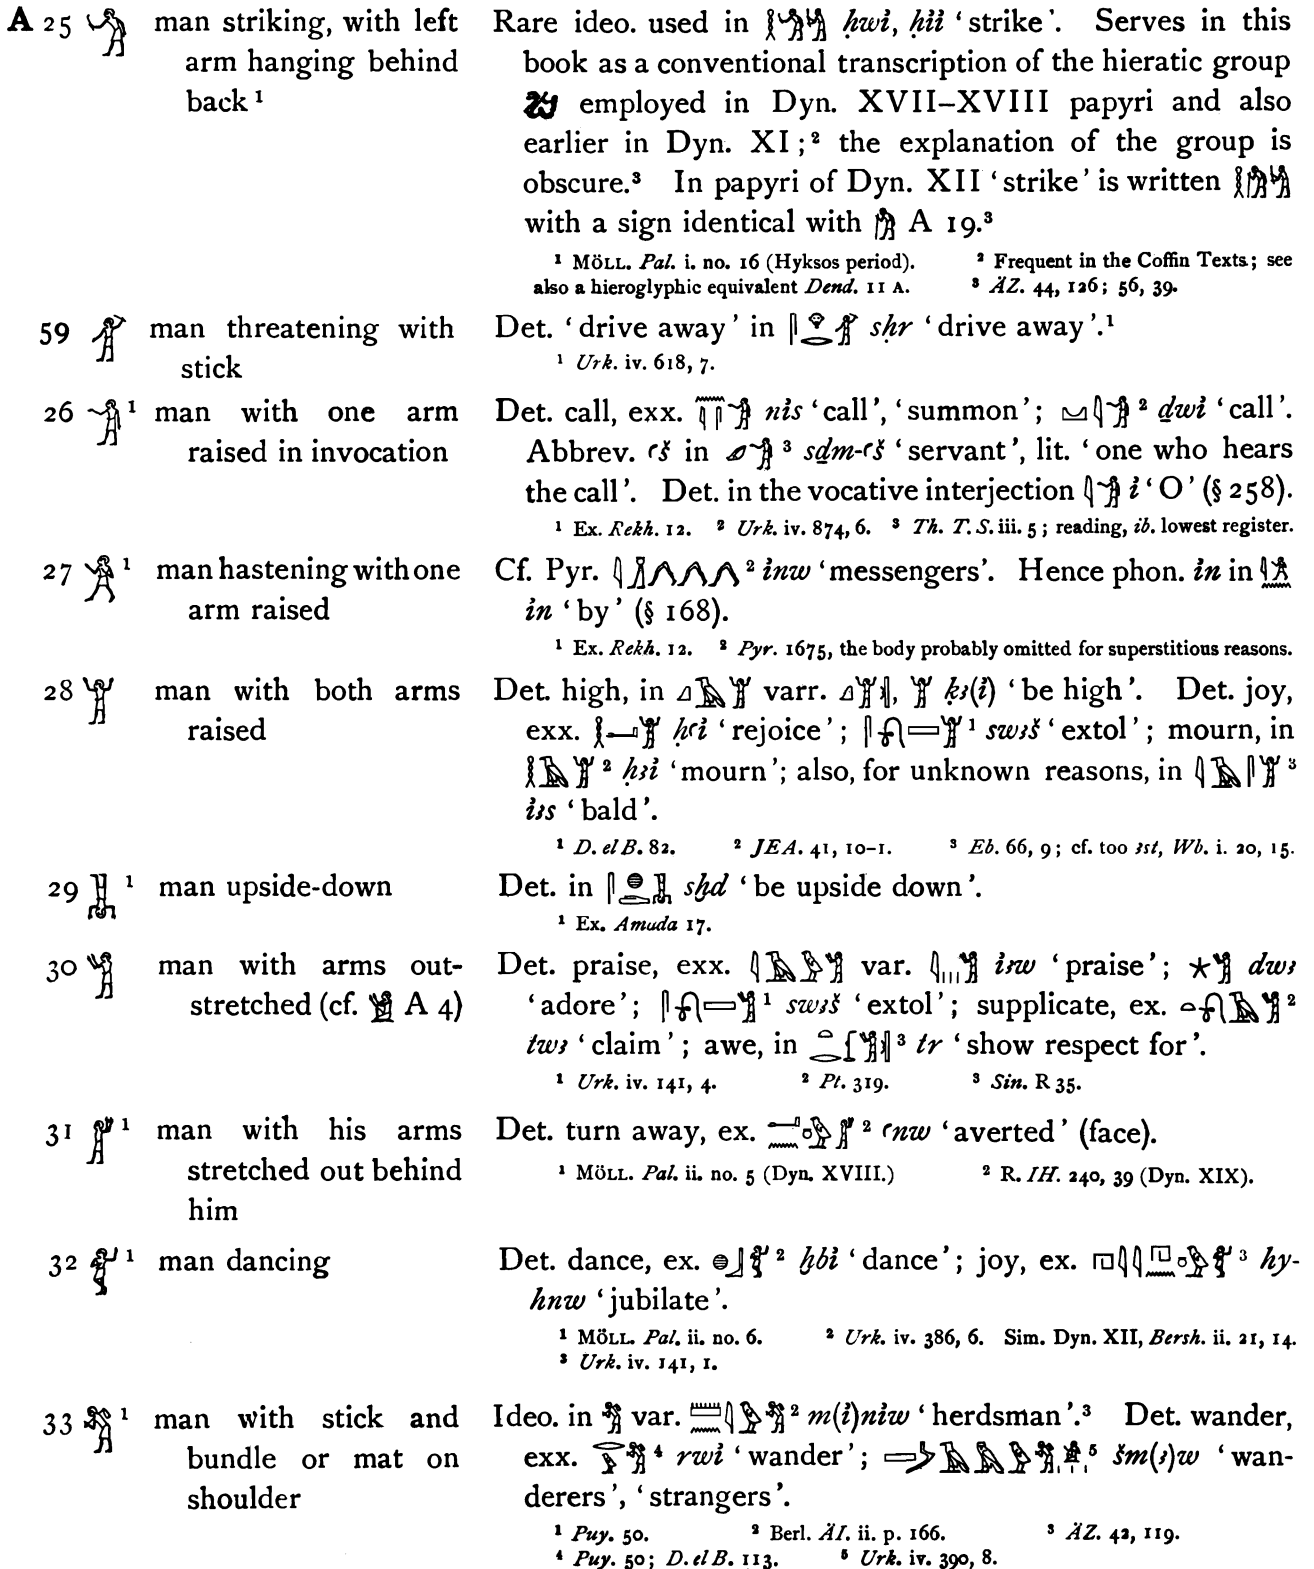 A 25 𓀝 man striking, with left
arm hanging behind
back ¹
Rare ideo. used in 𓎛𓀝𓀜 ḥwỉ, ḥỉỉ ‘strike’. Serves in this
book as a conventional transcription of the hieratic group
employed in Dyn. XVII–XVIII papyri and also
earlier in Dyn. XI;² the explanation of the group is
obscure.³ In papyri of Dyn. XII ‘strike’ is written 𓎛𓀗𓀜
with a sign identical with 𓀗 A 19.³
¹ MÖLL. Pal. i. no. 16 (Hyksos period). ² Frequent in the Coffin Texts; see
also a hieroglyphic equivalent Dend. 11 A. ³ ÄZ. 44, 126; 56, 39.
59 𓁄 man threatening with
stick
Det. ‘drive away’ in 𓋴𓁷𓂋𓁄 sḥr ‘drive away’.¹
¹ Urk. iv. 618, 7.
26 𓀞 ¹ man with one arm
raised in invocation
Det. call, exx. 𓈖𓇋𓋴𓀞 nỉs ‘call’, ‘summon’; 𓎟𓇋𓀞 ² ḏwỉ ‘call’.
Abbrev. ꜥš in 𓄔𓀞 ³ sḏm-ꜥš ‘servant’, lit. ‘one who hears
the call’. Det. in the vocative interjection 𓇋𓀞 ỉ ‘O’ (§ 258).
¹ Ex. Rekh. 12. ² Urk. iv. 874, 6. ³ Th. T. S. iii. 5; reading, ib. lowest register.
27 𓀟 ¹ man hastening with one
arm raised
Cf. Pyr. ² ỉnw ‘messengers’. Hence phon. ỉn in 𓇋𓀟𓈖
ỉn ‘by’ (§ 168).
¹ Ex. Rekh. 12. ² Pyr. 1675, the body probably omitted for superstitious reasons.
28 𓀠 man with both arms
raised
Det. high, in 𓈎𓄿𓀠 varr. 𓈎𓀠𓏭, 𓀠 ḳꜣ(ỉ) ‘be high’. Det. joy,
exx. 𓎛𓂝𓀠 ḥꜥỉ ‘rejoice’; 𓋴𓍯𓈙𓀠 ¹ swꜣš ‘extol’; mourn, in
𓎛𓄿𓀠 ² ḥꜣỉ ‘mourn’; also, for unknown reasons, in 𓇋𓄿𓋴𓀠 ³
ỉꜣs ‘bald’.
¹ D. el B. 82. ² JEA. 41, 10–1. ³ Eb. 66, 9; cf. too ꜣst, Wb. i. 20, 15.
29 𓀡 ¹ man upside-down
Det. in 𓋴𓐍𓂧𓀡 sḫd ‘be upside down’.
¹ Ex. Amada 17.
30 𓀢 man with arms out-
stretched (cf. 𓀃 A 4)
Det. praise, exx. 𓇋𓄿𓅱𓀢 var. 𓇋𓏥𓀢 ỉꜣw ‘praise’; 𓇼𓀢 dwꜣ
‘adore’; 𓋴𓍯𓈙𓀢 ¹ swꜣš ‘extol’; supplicate, ex. 𓏏𓍯𓄿𓀢 ²
twꜣ ‘claim’; awe, in 𓏏𓂋𓀢𓏭 ³ tr ‘show respect for’.
¹ Urk. iv. 141, 4. ² Pt. 319. ³ Sin. R 35.
31 𓀣 ¹ man with his arms
stretched out behind
him
Det. turn away, ex. 𓂝𓈖𓏌𓅱𓀣 ² ꜥnw ‘averted’ (face).
¹ MÖLL. Pal. ii. no. 5 (Dyn. XVIII.) ² R. IH. 240, 39 (Dyn. XIX).
32 𓀤 ¹ man dancing
Det. dance, ex. 𓐍𓃀𓀤 ² ḫbỉ ‘dance’; joy, ex. 𓉔𓇋𓇋𓉔𓈖𓏌𓅱𓀤 ³ hy-
hnw ‘jubilate’.
¹ MÖLL. Pal. ii. no. 6. ² Urk. iv. 386, 6. Sim. Dyn. XII, Bersh. ii. 21, 14.
³ Urk. iv. 141, 1.
33 𓀦 ¹ man with stick and
bundle or mat on
shoulder
Ideo. in 𓀦 var. 𓏠𓈖𓇋𓅱𓀦 ² m(ỉ)nỉw ‘herdsman’.³ Det. wander,
exx. 𓀦 ⁴ rwỉ ‘wander’; ⁵ šm(ꜣ)w ‘wan-
derers’, ‘strangers’.
¹ Puy. 50. ² Berl. ÄI. ii. p. 166. ³ ÄZ. 42, 119.
⁴ Puy. 50; D. el B. 113. ⁵ Urk. iv. 390, 8.